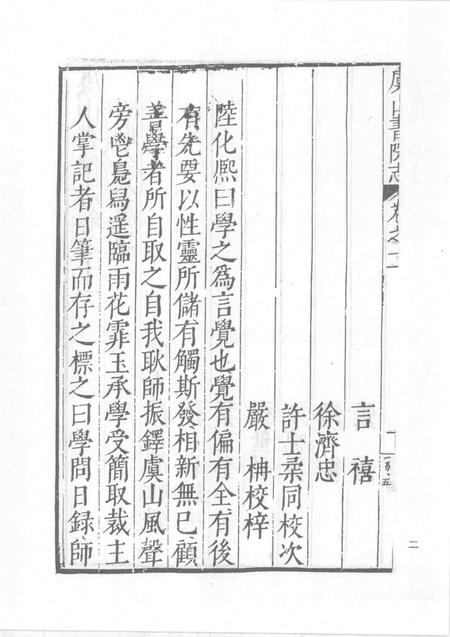 虞山書院志 卷之十二
言禧
徐濟忠
許士柔同校次
嚴柟校梓
陸化熙曰學之為言覺也覺有偏有全有後
有先要以性靈所儲有觸斯發相新無已顧
善學者所自取之自我耿師振鐸虞山風聲
旁鬯鳧舃遥臨雨花霏玉承學受簡取裁主
人掌記者日筆而存之標之曰學問日録師
二